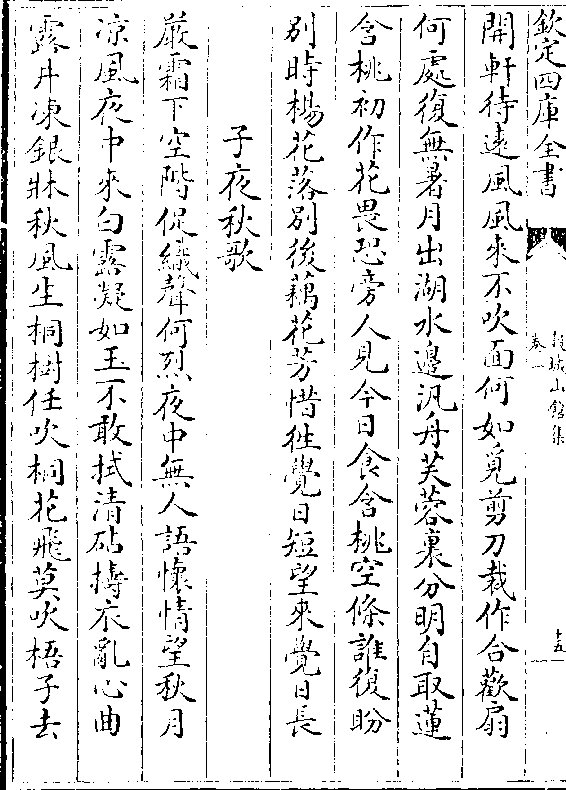 欽定四庫全書
穀城山館集
卷一
十五
開軒待遠風風來不吹面何如覓剪刀裁作合歡扇
何處復無暑月出湖水邊汎舟芙蓉裏分明自取蓮
含桃初作花畏恐旁人見今日食含桃空條誰復盼
別時楊花落別後藕花芳惜徃覺日短望來覺日長
子夜秋歌
嚴霜下空階促織聲何烈夜中無人語懷情望秋月
凉風夜中來白露凝如玉不敢拭清砧擣衣亂心曲
露井凍銀牀秋風生桐樹任吹桐花飛莫吹梧子去